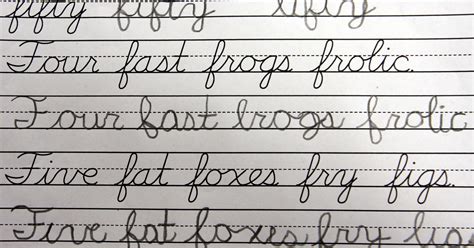 fifty fifty fifty
Four fast frogs frolic.
Four fast frogs frolic
Five fat foxes fry figs.
Five fat foxes fry figs